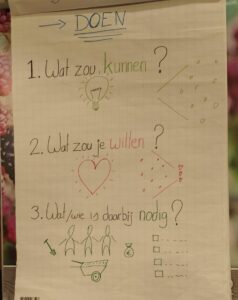 → DOEN
1. Wat zou kunnen?
2. Wat zou je willen?
3. Wat/wie is daarbij nodig?